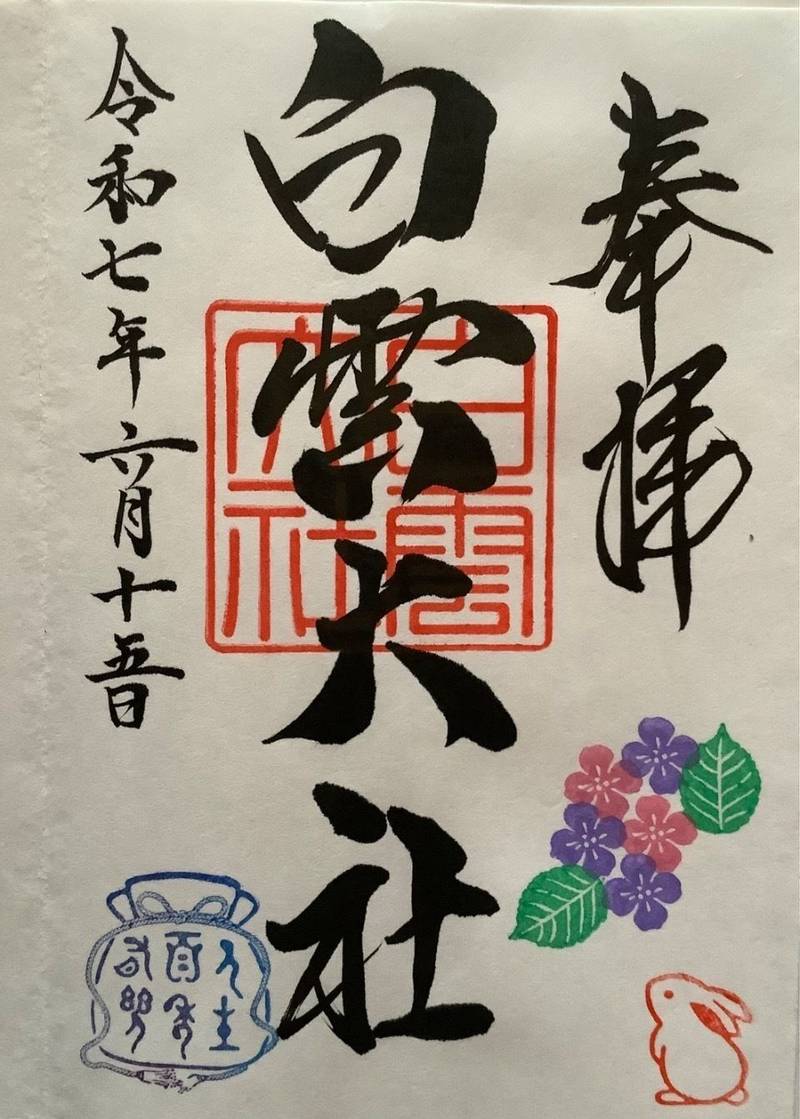 奉拝
白雲大社
白雲
大社
令和七年六月十五日